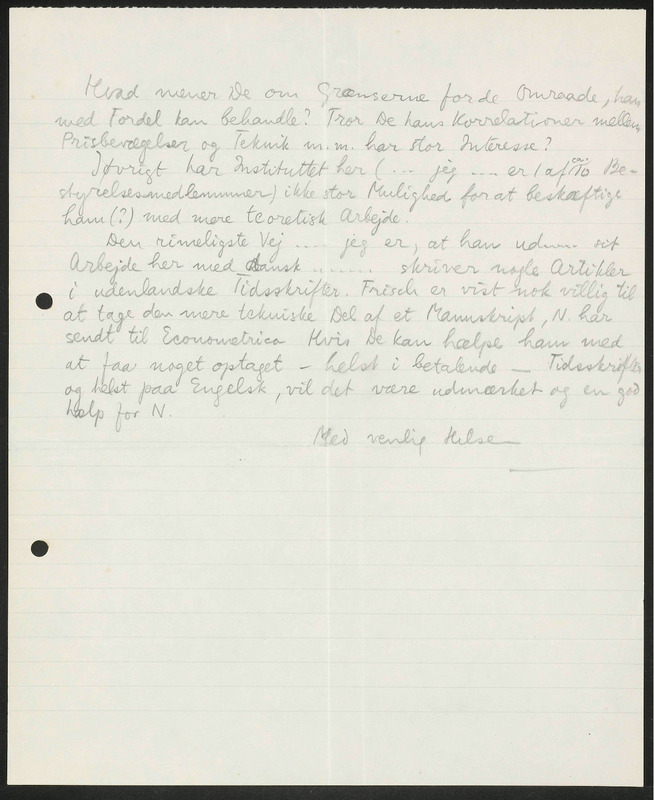 Hvad mener De om Grænserne for de Omraade, han
med Fordel kan behandle? Tror De hans Korrelationer mellem
Prisbevægelser og Teknik m.m. har stor Interesse?
Iøvrigt har Instituttet her (.... jeg .... er 1 af ca. 10 Be-
styrelsesmedlemmer) ikke stor Mulighed for at beskæftige
ham (?) med mere teoretisk Arbejde.
Den rimeligste Vej .... jeg er, at han ud.... sit
Arbejde her med dansk ....... skriver nogle Artikler
i udenlandske Tidsskrifter. Frisch er vist nok villig til
at tage den mere tekniske Del af et Manuskript, N. har
sendt til Econometrica Hvis De kan hælpe ham med
at faa noget optaget – helst i betalende – Tidsskrifter
og helst paa Engelsk, vil det være udmærket og en god
Hælp for N.
Med venlig Hilsen